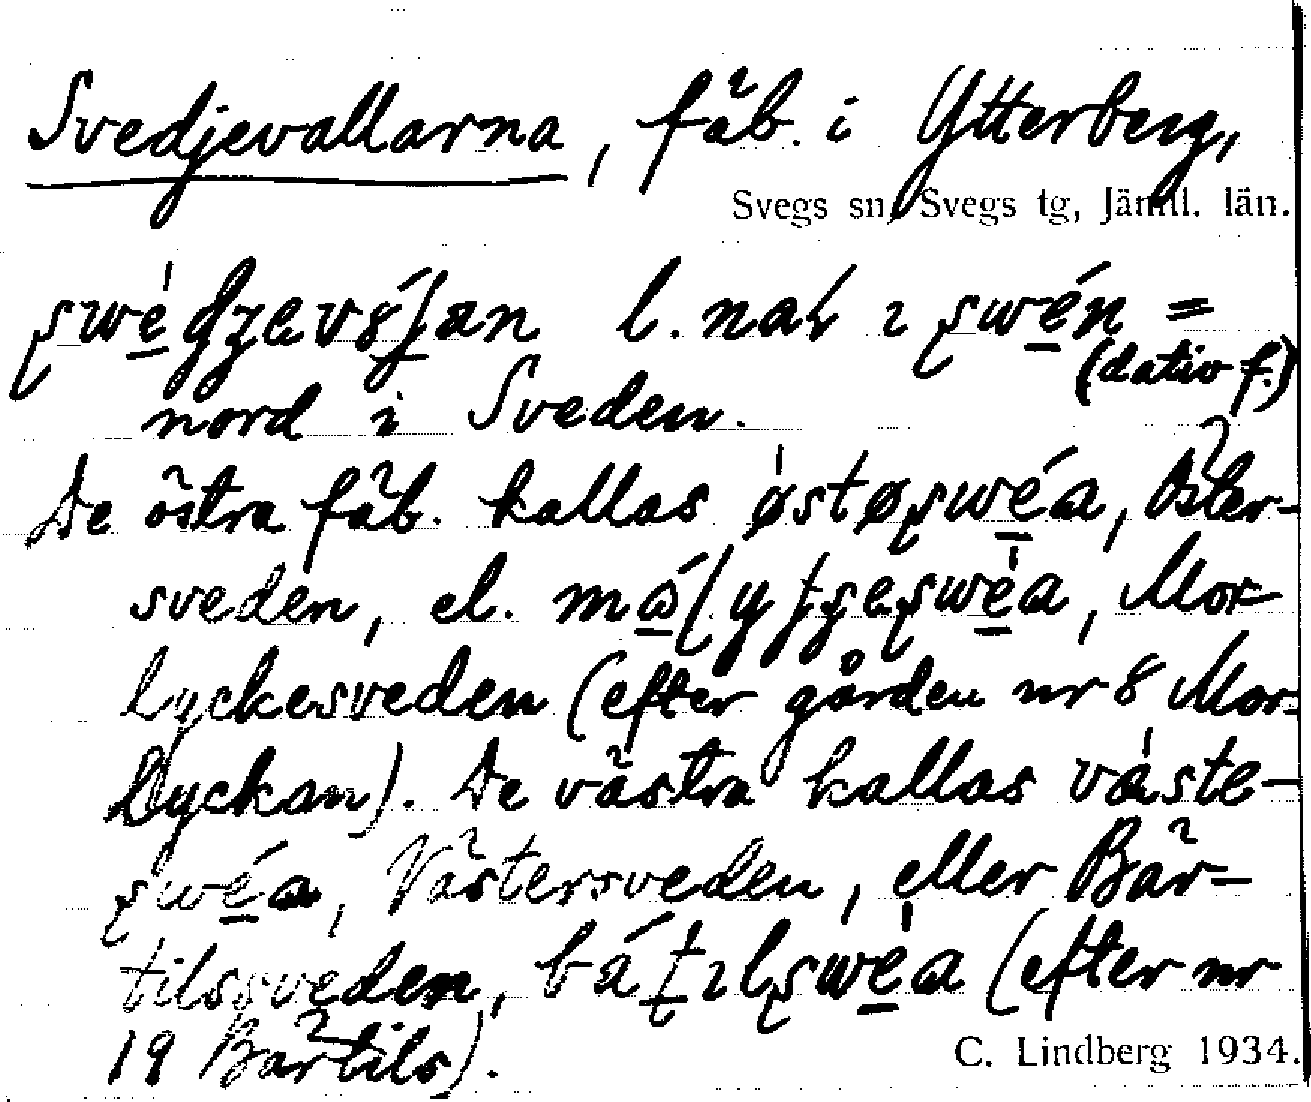 Svedjevallarna, fäb. i Ytterberg,
Svegs sn, Svegs tg, Jämtl. län.
l. nar ı =
(dativ f.)
nord i Sveden.
De östra fäb. kallas Öster-
sveden, el. Mor-
lyckesveden (efter gården nr 8 Mor-
lyckan). De västra kallas väste-
Västersveden, eller Bär-
tilssveden, (efter nr
19 Bärtils).
C. Lindberg 1934.